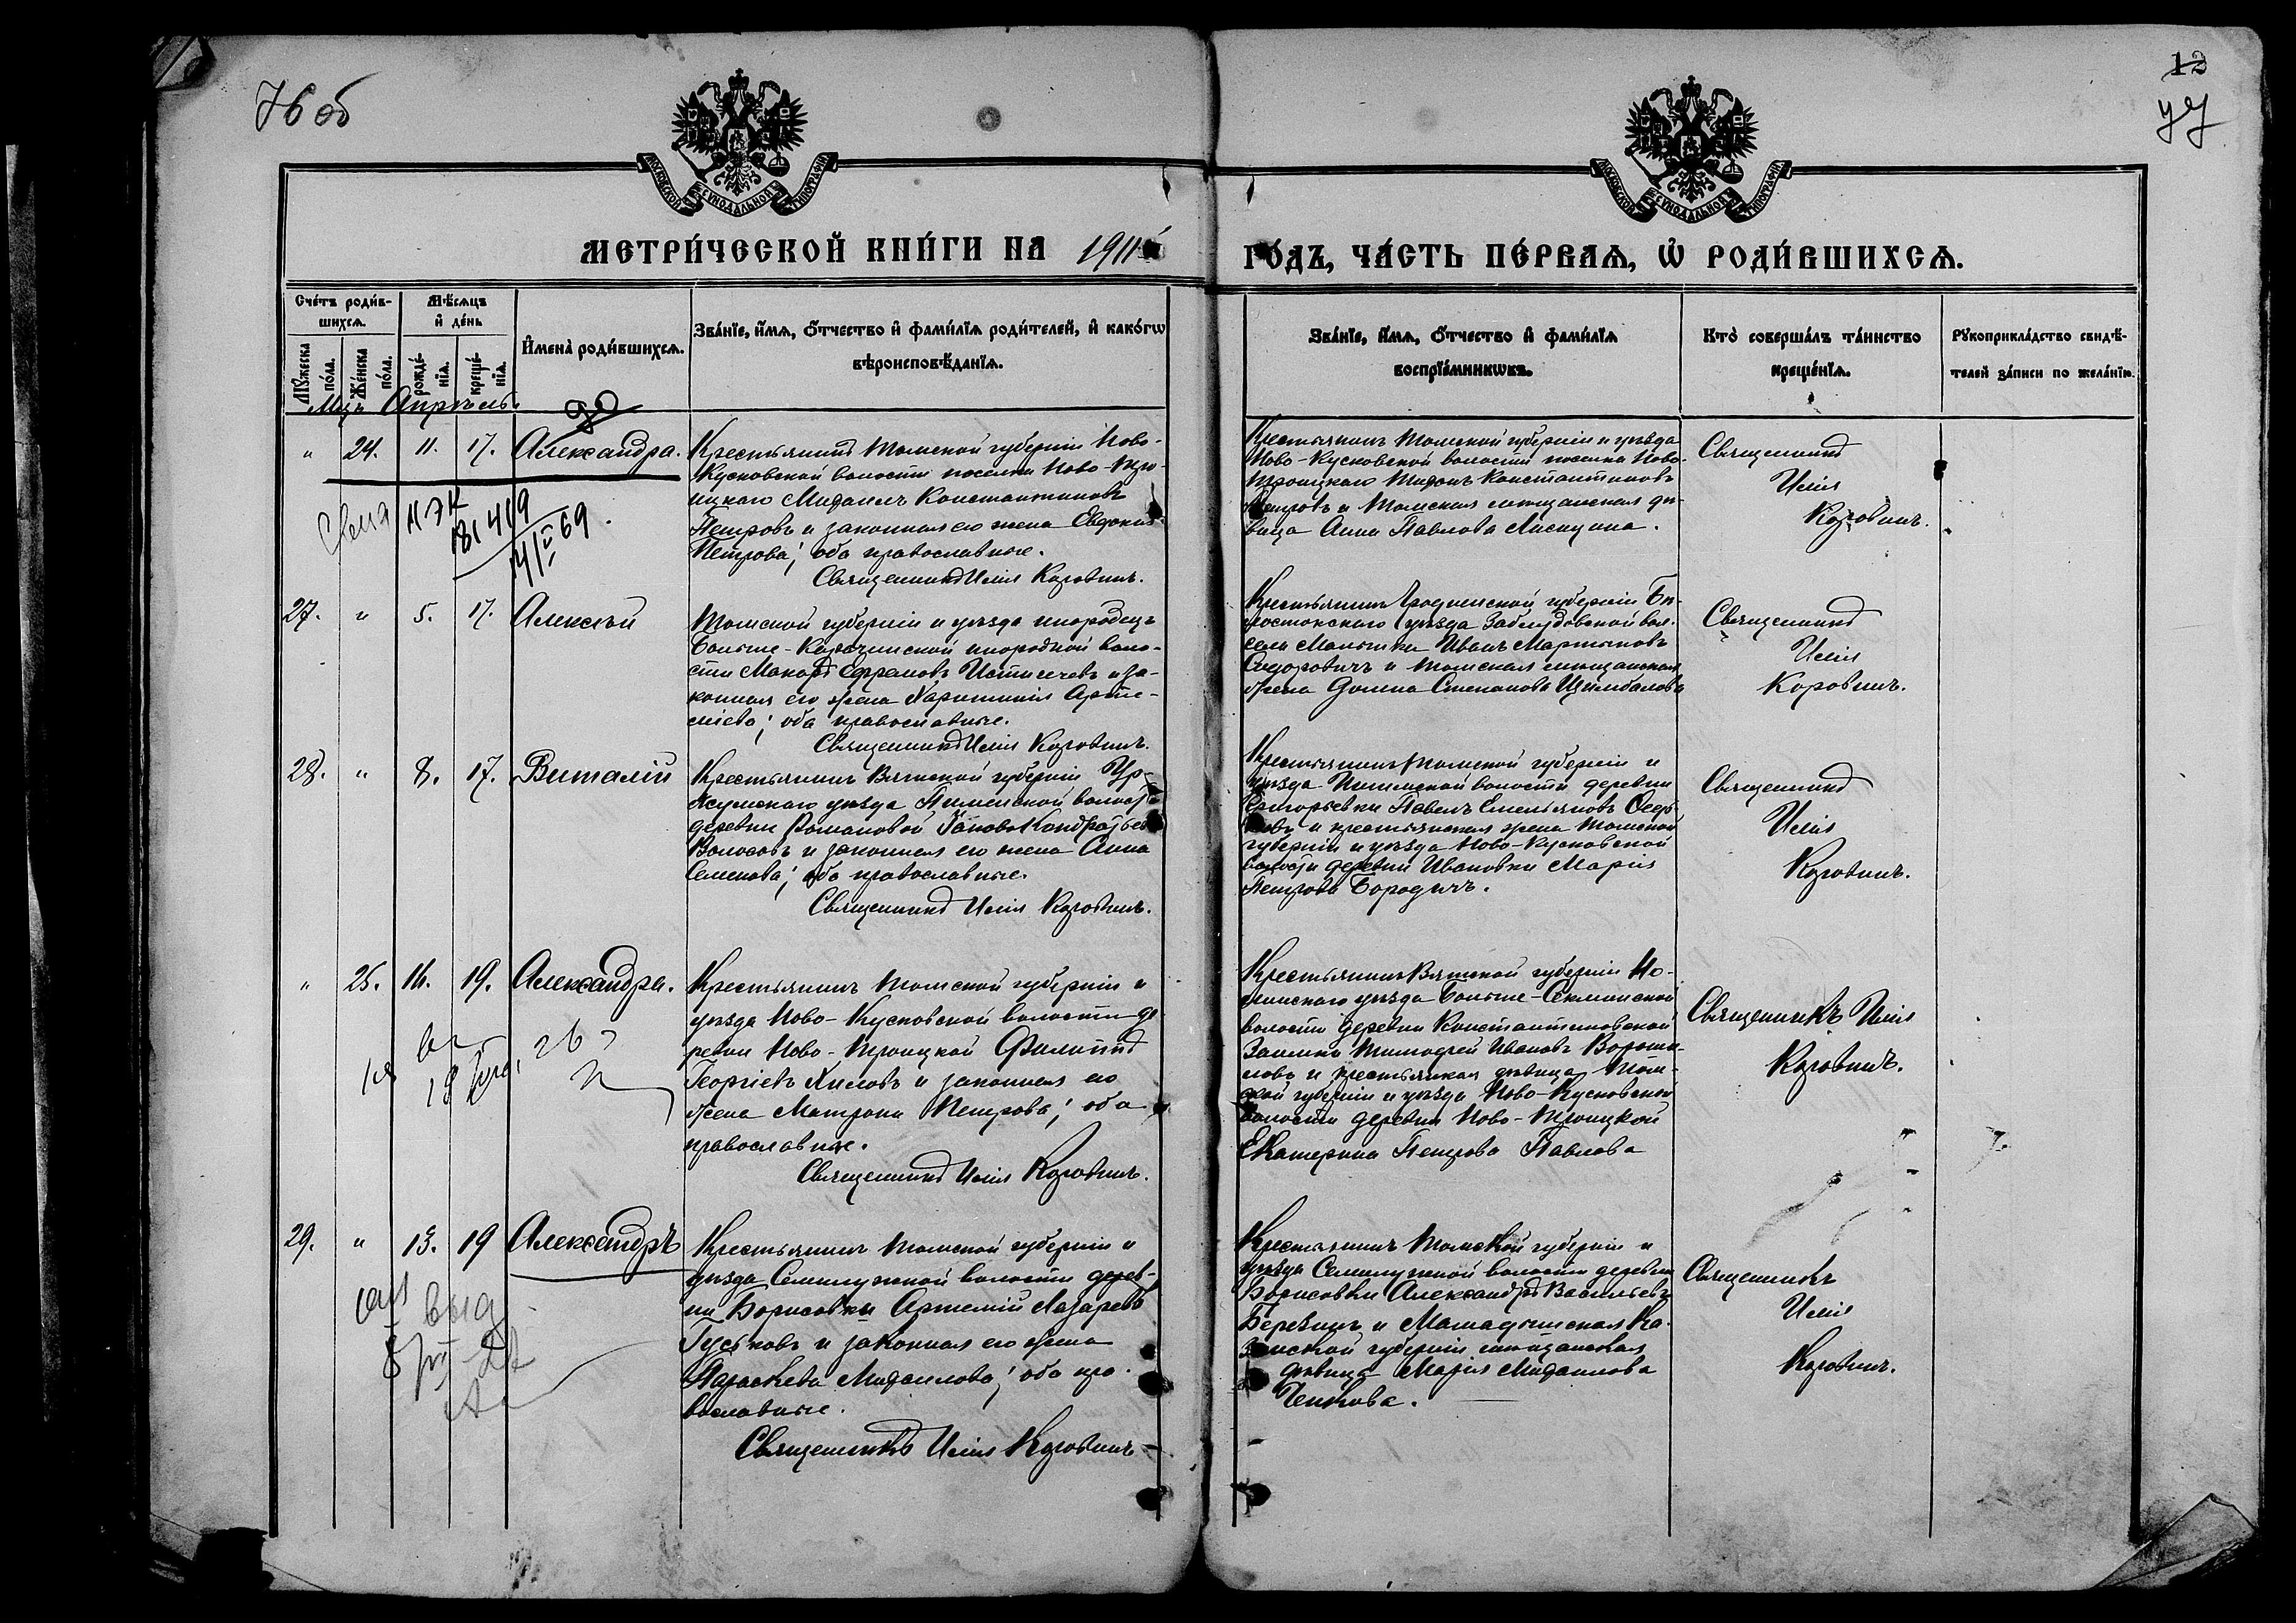 76 об
12
77
МОСКОВСКОЙ СѴНОДАЛЬНОЙ ТИПОГРАФІИ
МОСКОВСКОЙ СѴНОДАЛЬНОЙ ТИПОГРАФІИ
МЕТРИ́ЧЕСКОЙ КНИ́ГИ НА 1911
ГО́ДЪ, ЧА́СТЬ ПЕ́РВАѦ, Ѡ҆ РОДИ́ВШИХСѦ.
Сче́тъ роди́в-
шихсѧ.
Мꙋ́жеска по́ла.
Же́нска по́ла.
Мѣ́сѧцъ
и҆ де́нь
рожде́-
нїѧ.
креще́-
нїѧ.
И҆мена̀ роди́вшихсѧ.
Зва́нїе, и҆́мѧ, ѻ҆́тчество и҆ фами́лїѧ роди́телей, и҆ како́гѡ
вѣроисповѣ́данїѧ.
Зва́нїе, и҆́мѧ, ѻ҆́тчество и҆ фами́лїѧ
воспрїе́мникѡвъ.
Кто̀ соверша́лъ та́инство
креще́нїѧ.
Рꙋкоприкла́дство свидѣ́-
телей за́писи по жела́нїю.
Мцъ Апрѣль
" 24. 11. 17. Александра.
Крестьянинъ Томской губерніи Ново-
Кусковской волости поселка Ново-Тро-
ицкаго Михаилъ Константиновъ
Петровъ и законная его жена Евдокія
Петрова; оба православные.
Священникъ Илія Коровинъ.
Крестьянинъ Томской губерніи и уѣзда
Ново-Кусковской волости поселка Ново-
Троицкаго Константиновъ
Петровъ и Томская мѣщанская дѣ-
вица Анна Павлова Лисицина.
Священникъ
Илія
Коровинъ.
181419
14/II 69.
27. " 5. 17. Алексѣй
Томской губерніи и уѣзда инородецъ
инородной воло-
сти Макаръ Ефремовъ и за-
конная его жена Харитинія Арте-
міева; оба православные.
Священникъ Илія Коровинъ.
Крестьянинъ Гродненской губерніи Бѣ-
лостокского уѣзда Заблудовской вол.
села Иванъ Мартыновъ
Сидоровичъ и Томская мѣщанская
жена Домна Степанова Цимбалова
Священникъ
Илія
Коровинъ.
28. " 8. 17. Виталій
Крестьянинъ Вятской губерніи Ур-
жумскаго уѣзда волости
деревни Романовой Яковъ Кондратьевъ
Волосовъ и законная его жена Анна
Семенова; оба православные.
Священникъ Илія Коровинъ.
Крестьянинъ Томской губерніи и
уѣзда Ишимской волости деревни
Григорьевки Павелъ Емельяновъ
и крестьянская жена Томской
губерніи и уѣзда Ново-Кусковской
волости деревни Ивановки Марія
Петрова Бородичъ.
Священникъ
Илія
Коровинъ.
" 25. 16. 19. Александра.
Крестьянинъ Томской губерніи и
уѣзда Ново-Кусковской волости де-
ревни Ново-Троицкой Филиппъ
Георгіевъ Хиловъ и законная его
жена Матрона Петрова; оба
православные.
Священникъ Илія Коровинъ.
Крестьянинъ Вятской губерніи Но-
линскаго уѣзда Больше-Ситминской
волости деревни Константиновской
Тимофей Ивановъ
и крестьянская дѣвица Том-
ской губерніи и уѣзда Ново-Кусковской
волости деревни Ново-Троицкой
Екатерина Петрова Павлова
Священникъ Илія
Коровинъ.
29. " 13. 19 Александръ
Крестьянинъ Томской губерніи и
уѣзда Семилужной волости дерев-
ни Борисовки Артемій Лазаревъ
Гуськовъ и законная его жена
Параскева Михаилова; оба пра-
вославные.
Священникъ Илія Коровинъ
Крестьянинъ Томской губерніи и
уѣзда Семилужной волости деревни
Борисовки Александръ Васильевъ
Березинъ и Мамадышская Ка-
занской губерніи мѣщанская
дѣвица Марія Михаилова
Ченкова.
Священникъ
Илія
Коровинъ.